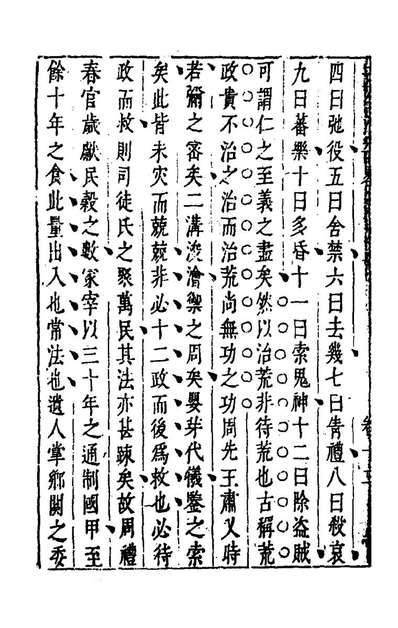 四曰弛役五曰舍禁六曰去幾七曰眚禮八曰殺哀
九曰蕃樂十曰多昏十一曰索鬼神十二曰除盜賊
可謂仁之至義之盡矣然以治荒非待荒也古稱荒
政貴不治之治而治荒尚無功之功周先王肅乂時
若彌之密矣二溝浚澮禦之周矣嬰芽代儀鑒之索
矣此皆未灾而兢兢非必十二政而後爲救也必待
政而救則司徒氏之聚萬民其法亦甚踈矣故周禮
春官歲獻民穀之數冢宰以三十年之通制國甲至
餘十年之食此量出入也常法也遺人掌鄉關之委
卷十